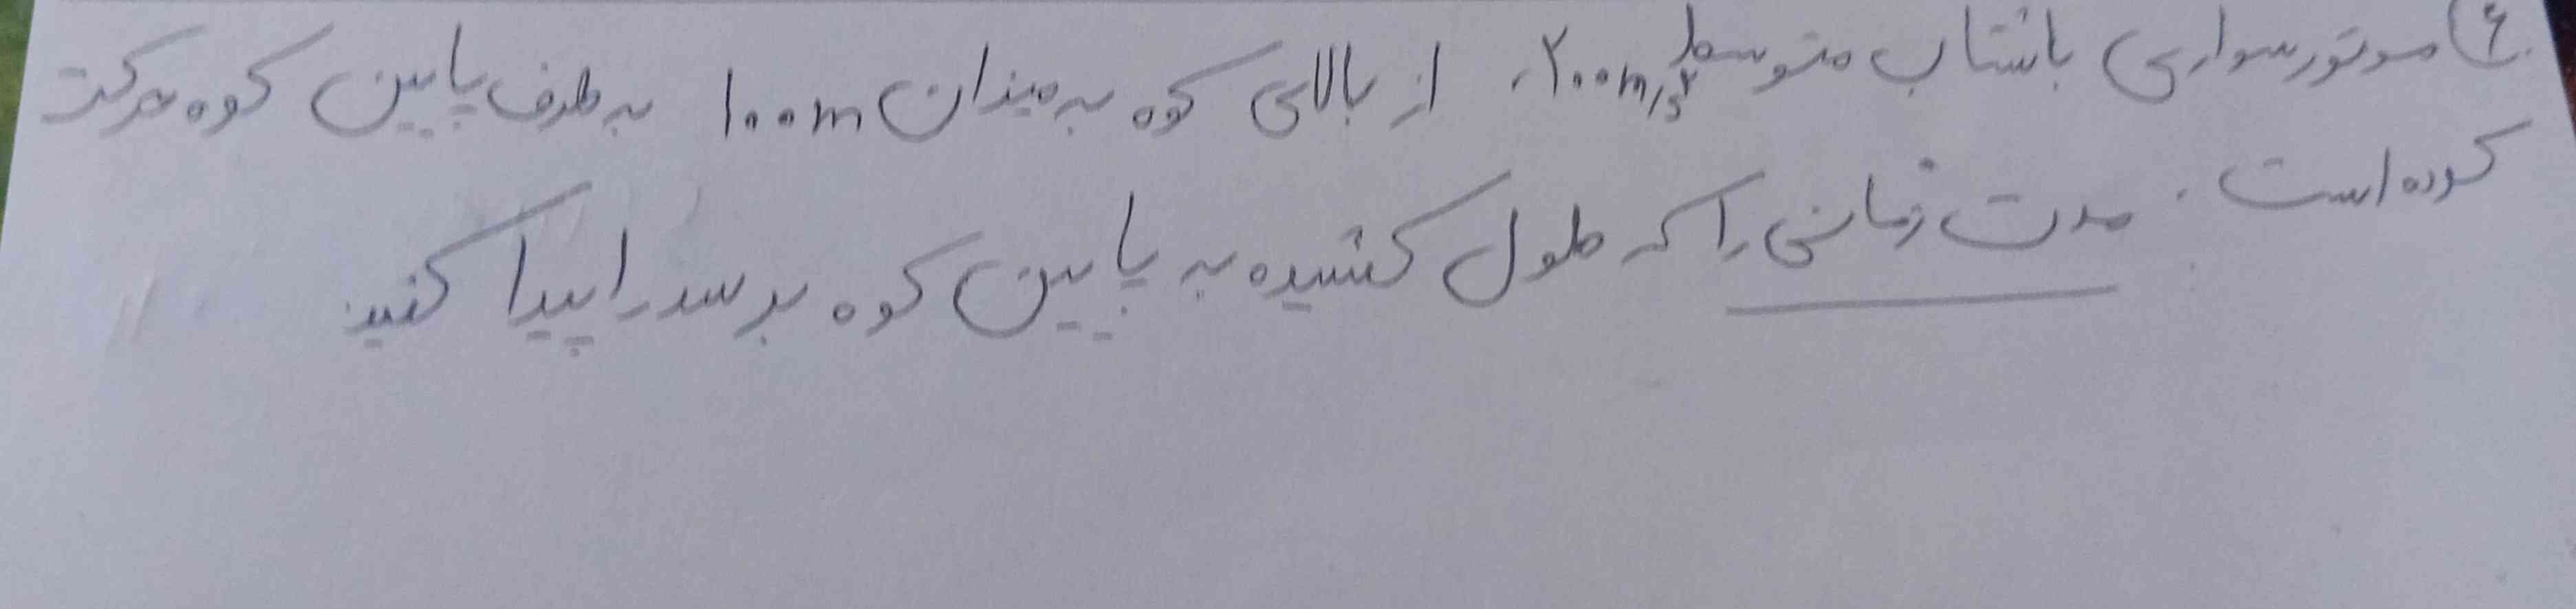 ۶) موتورسواری باشتاب متوسط ۲۰۰m/s^۲ از بالای کوه به میزان ۱۰۰m به طرف پایین کوه حرکت
کرده است. مدت زمانی را که طول کشیده به پایین کوه برسد را پیدا کنید.